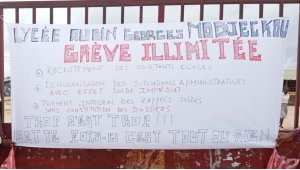 LYCÉE ALAIN GEORGES MADJECKOU
GRÈVE ILLIMITÉE
RECRUTEMENT DES SORTANTS ECOLES
RÉGULARISATION DES SITUATIONS ADMINISTRATIVES
AVEC EFFET SOLDE IMMÉDIAT
PAIEMENT INTEGRAL DES RAPPELS SOLDES
SANS CONSTITUTION DES DOSSIERS
TROP C'EST TROP !!!
CETTE FOIS-CI C'EST TOUT OU RIEN